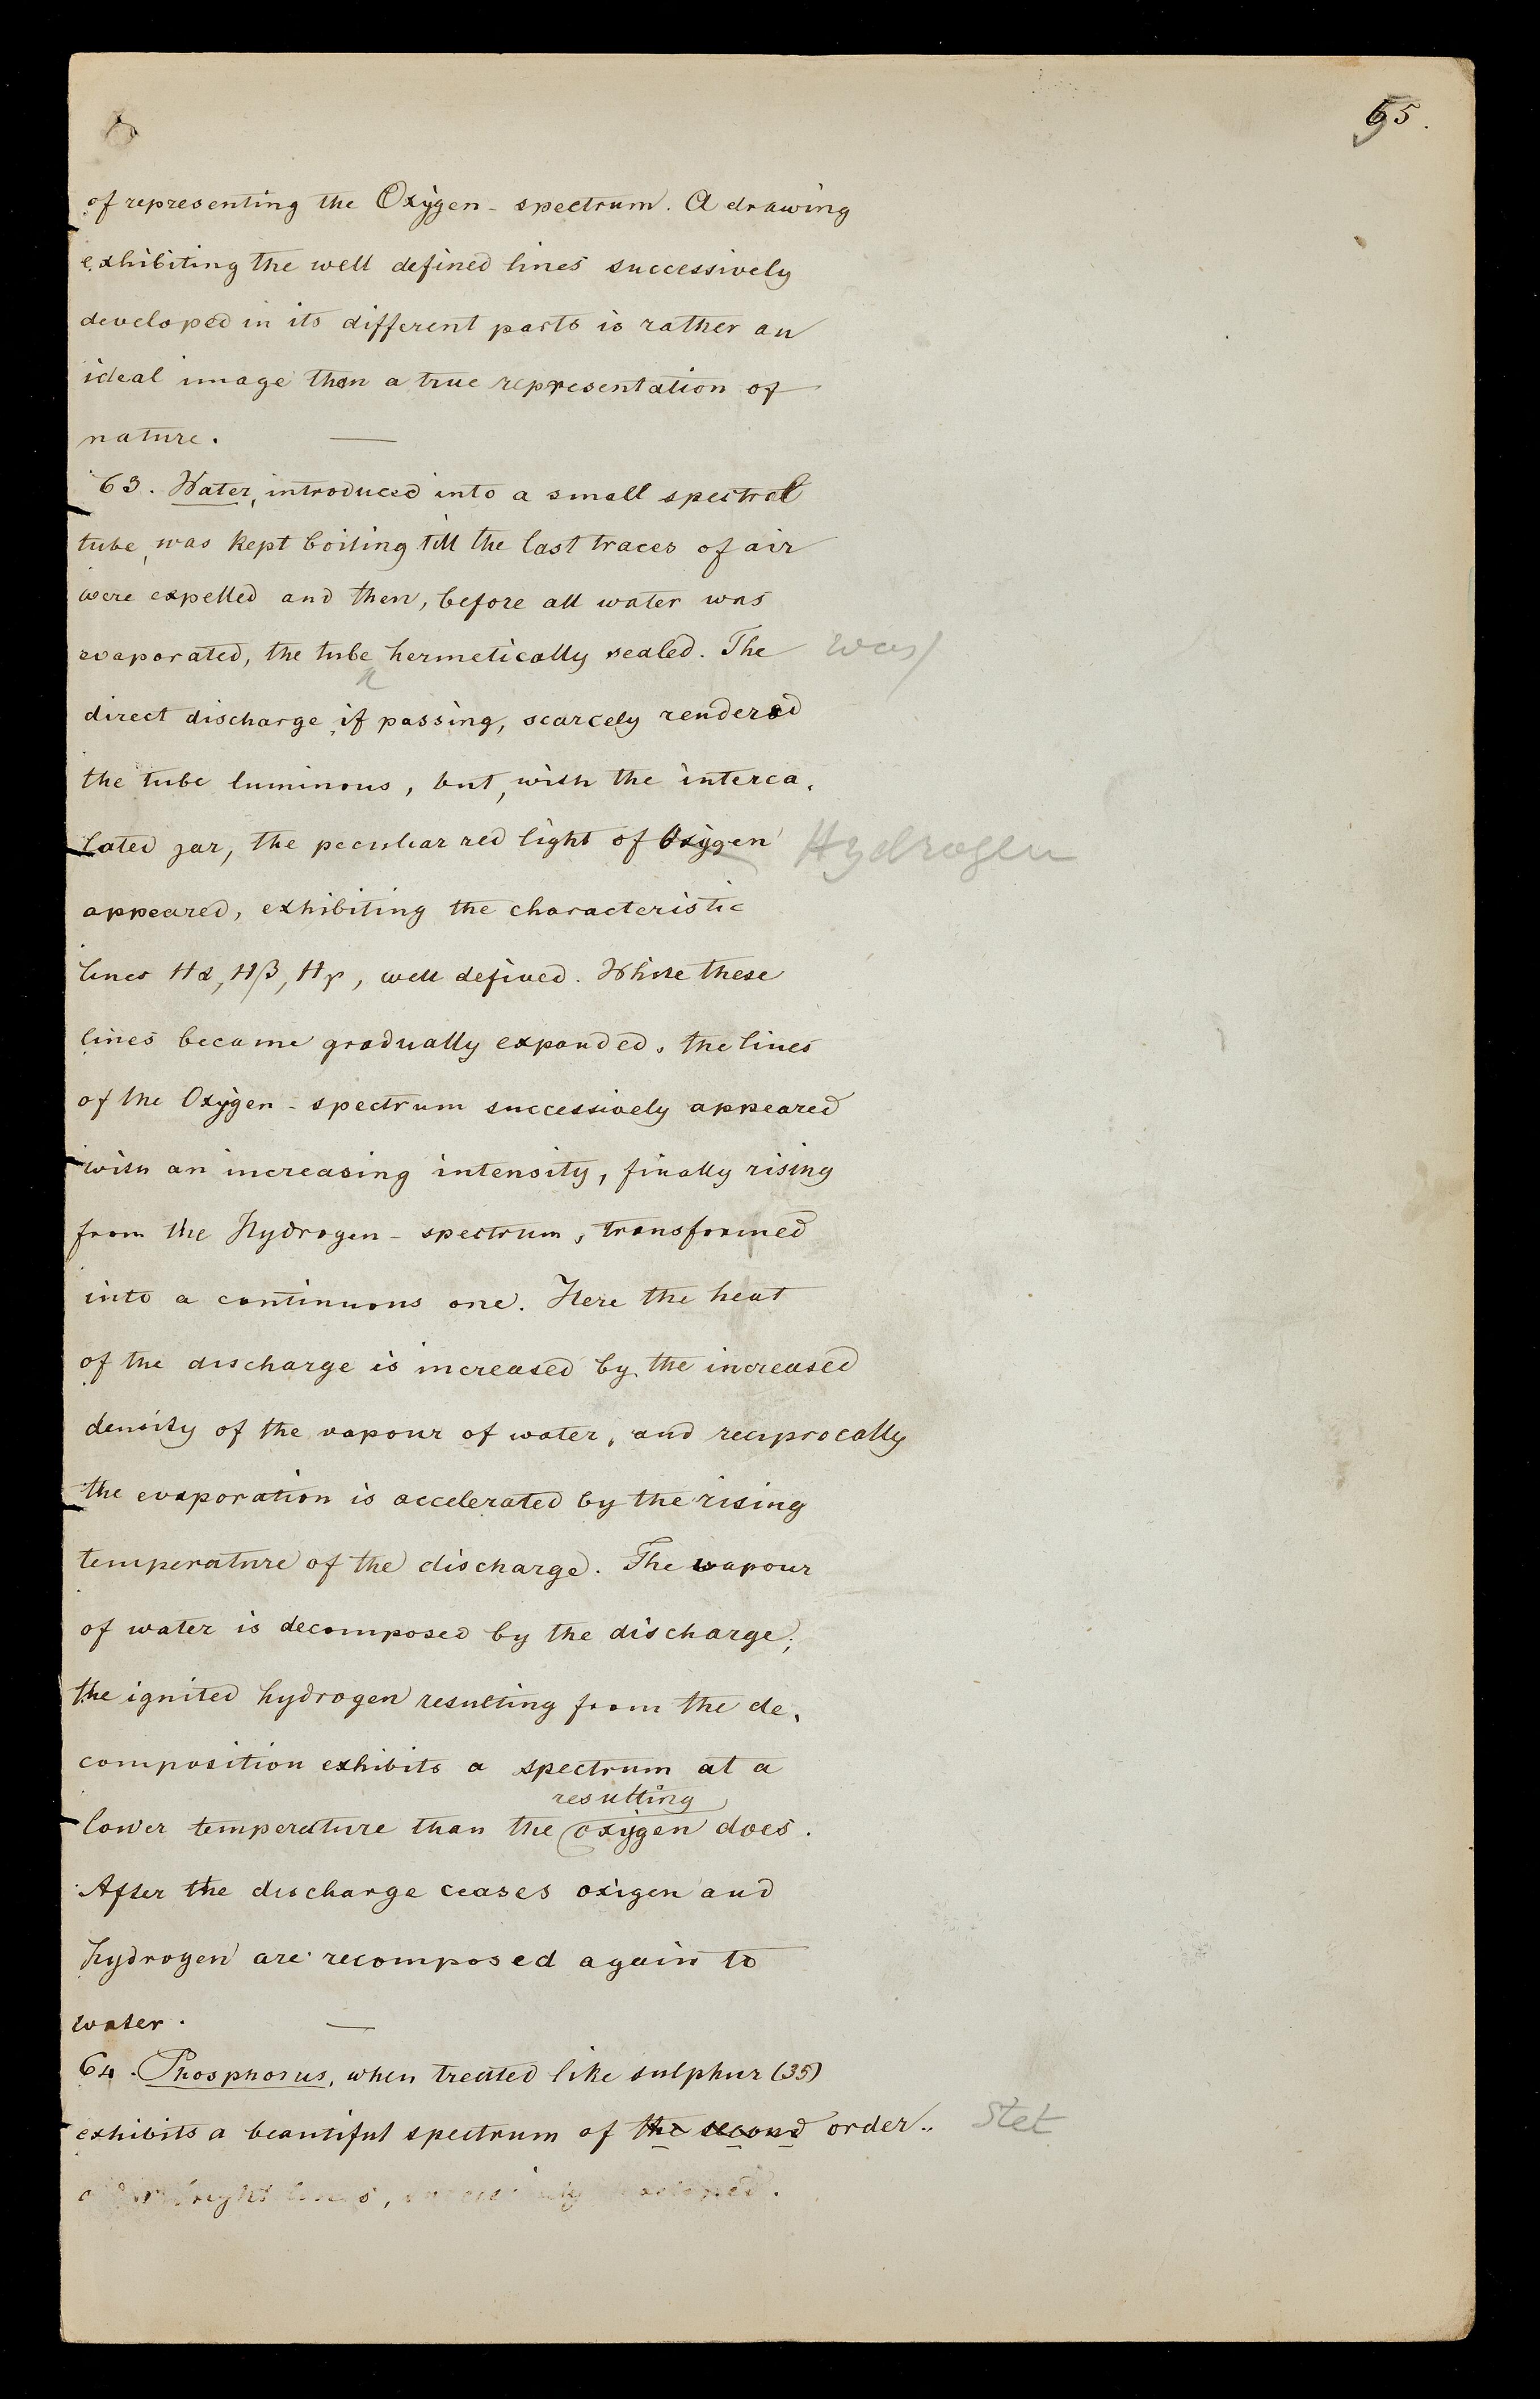 65.
of representing the Oxygen - spectrum. A drawing
exhibiting the well defined lines successively
developed in its different parts is rather an
ideal image than a true representation of
nature. —
63. Water, introduced into a small spectral
tube, was kept boiling till the last traces of air
were expelled and then, before all water was
evaporated, the tube ^ hermetically sealed. The was/
direct discharge, if passing, scarcely rendered
the tube luminous, but, with the interca-
lated jar, the peculiar red light of Oxygen Hydrogen
appeared, exhibiting the characteristic
lines Hα, Hβ, Hγ, well defined. While these
lines became gradually expanded, the lines
of the Oxygen - spectrum successively appeared
with an increasing intensity, finally rising
from the Hydrogen - spectrum, transformed
into a continuous one. Here the heat
of the discharge is increased by the increased
density of the vapour of water, and reciprocally
the evaporation is accelerated by the rising
temperature of the discharge. The vapour
of water is decomposed by the discharge;
the ignited hydrogen resulting from the de-
composition exhibits a spectrum at a
resulting
lower temperature than the oxygen does.
After the discharge ceases oxigen and
hydrogen are recomposed again to
water. —
64. Phosphorus, when treated like sulphur (35)
exhibits a beautiful spectrum of the second order.. Stet
bright